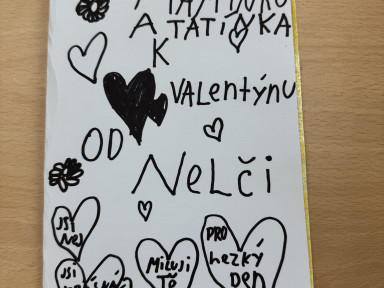 A TATÍNKA
K
VALentýnu
OD
NeLči
JSI
NeJ
JSI
MiLuji
Tě
PRO
hezký
DeN